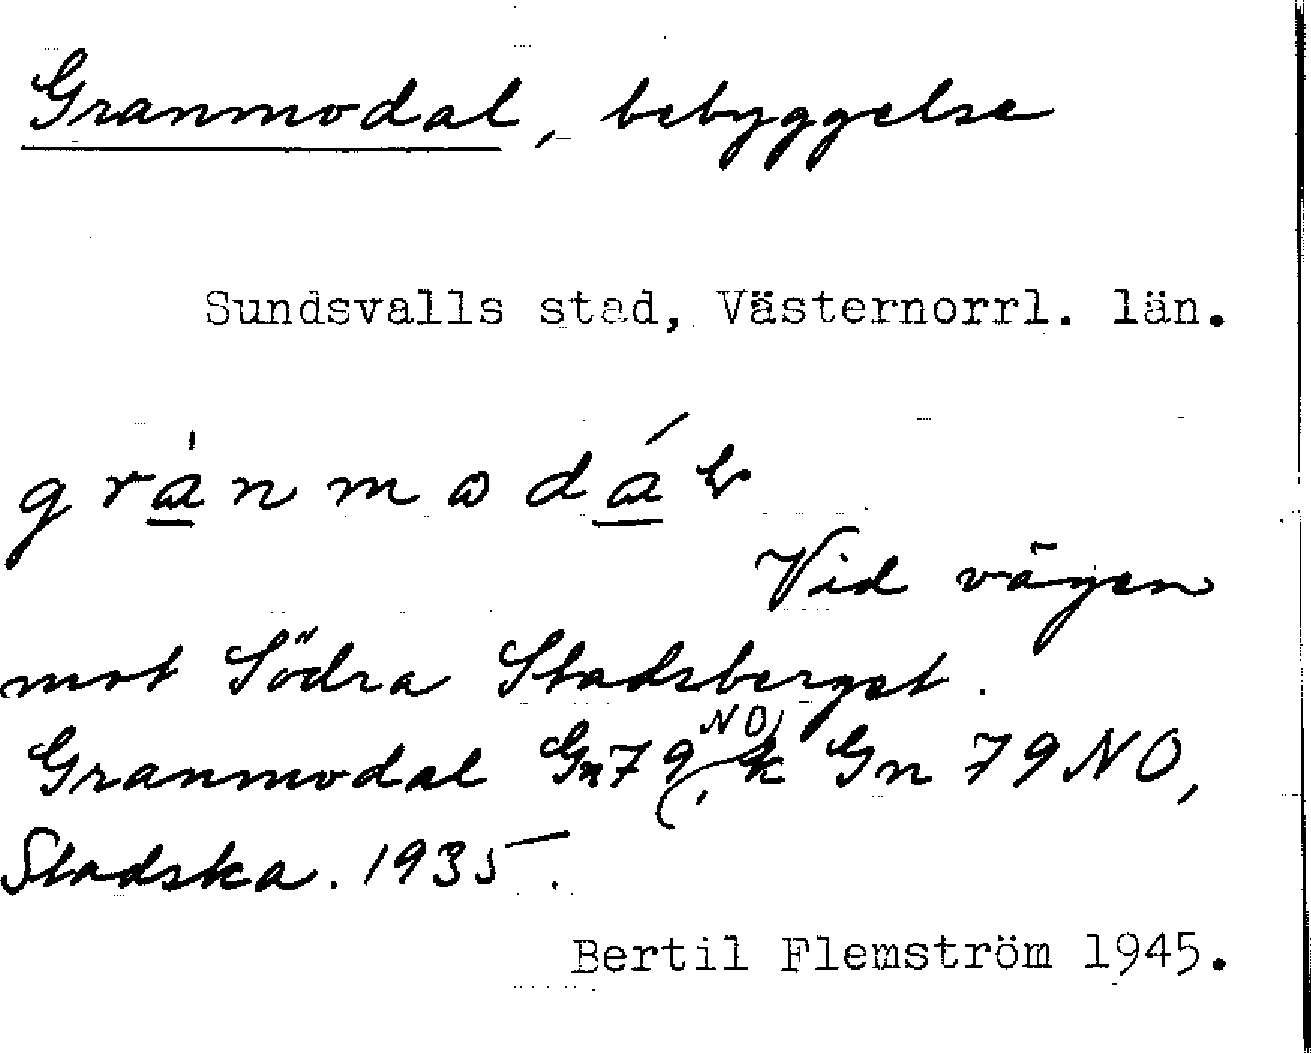 Granmodal, bebyggelse
Sundsvalls stad, Västernorrl. län.
Vid vägen
mot Södra Stadsberget.
Granmodal Gn 79 NO, k Gn 79 NO,
Stadska. 1935.
Bertil Flemström 1945.